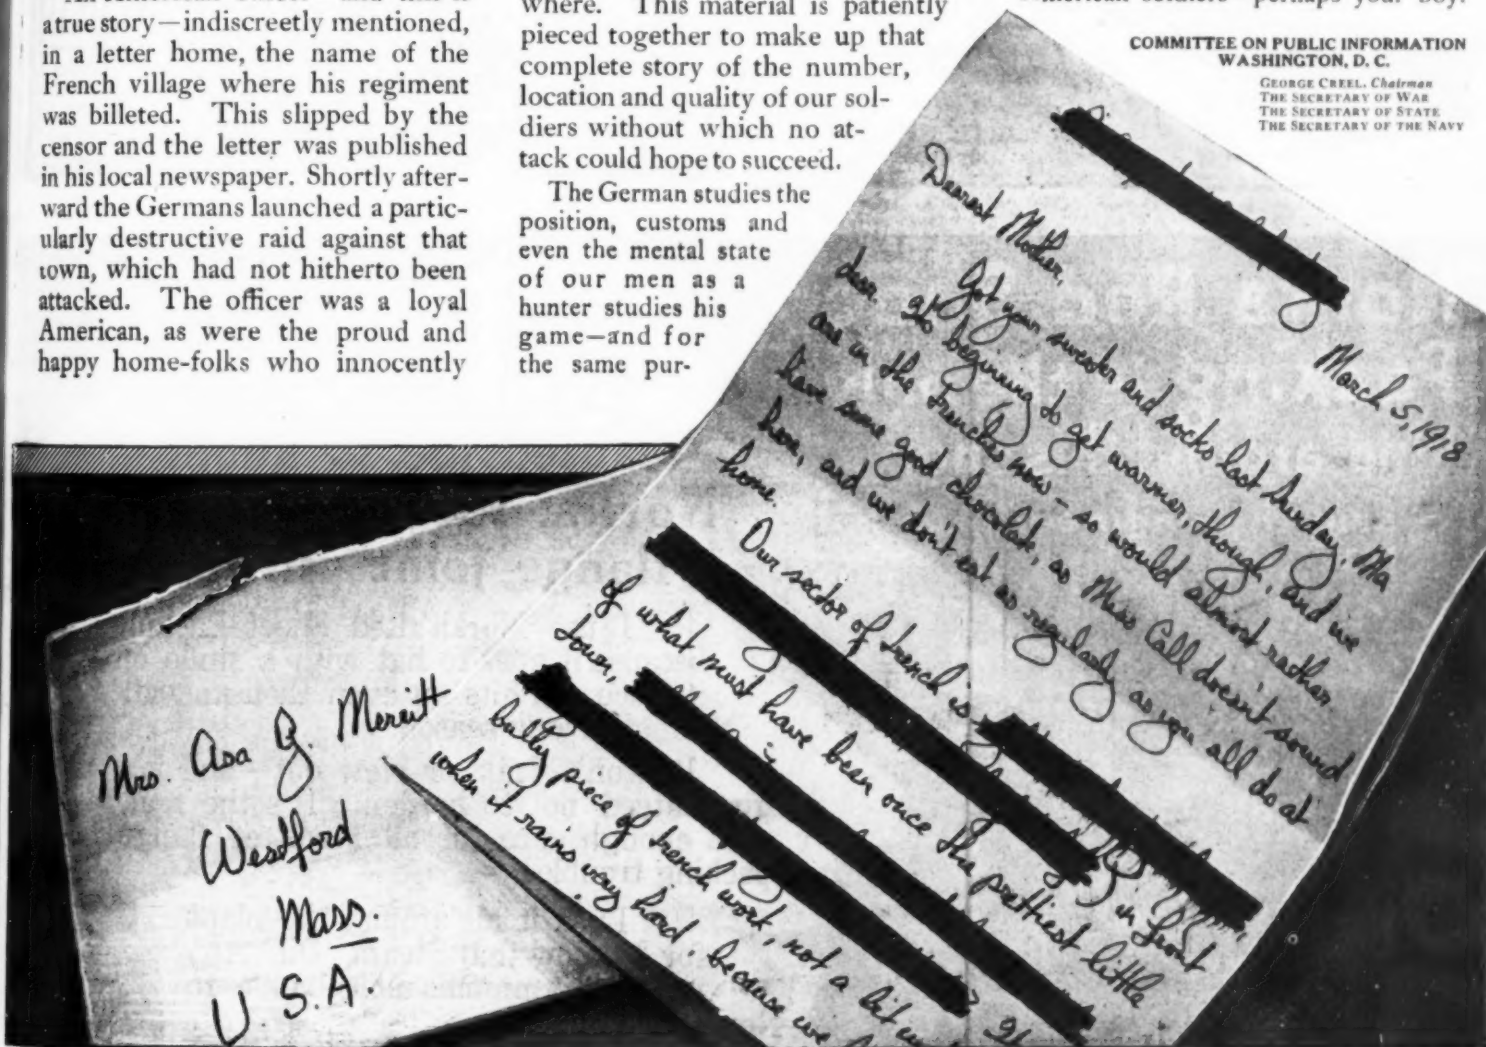 a true story—indiscreetly mentioned,
in a letter home, the name of the
French village where his regiment
was billeted. This slipped by the
censor and the letter was published
in his local newspaper. Shortly after-
ward the Germans launched a partic-
ularly destructive raid against that
town, which had not hitherto been
attacked. The officer was a loyal
American, as were the proud and
happy home-folks who innocently
where. This material is patiently
pieced together to make up that
complete story of the number,
location and quality of our sol-
diers without which no at-
tack could hope to succeed.
The German studies the
position, customs and
even the mental state
of our men as a
hunter studies his
game—and for
the same pur-
American soldiers—perhaps your boy.
COMMITTEE ON PUBLIC INFORMATION
WASHINGTON, D. C.
GEORGE CREEL, Chairman
THE SECRETARY OF WAR
THE SECRETARY OF STATE
THE SECRETARY OF THE NAVY
March 5, 1918
Dearest Mother,
Got your sweater and socks last Sunday, Ma
dear. It's beginning to get warmer, though, and we
are in the trenches now — so would almost rather
have some good chocolate, as Miss Call doesn't sound
here, and we don't eat as regularly as you all do at
home.
Our sector of trench is
in front
of what must have been once the prettiest little
town,
bully piece of trench work, not a bit
when it rains very hard because we
Mrs. Asa G. Merritt
Westford
Mass.
U.S.A.